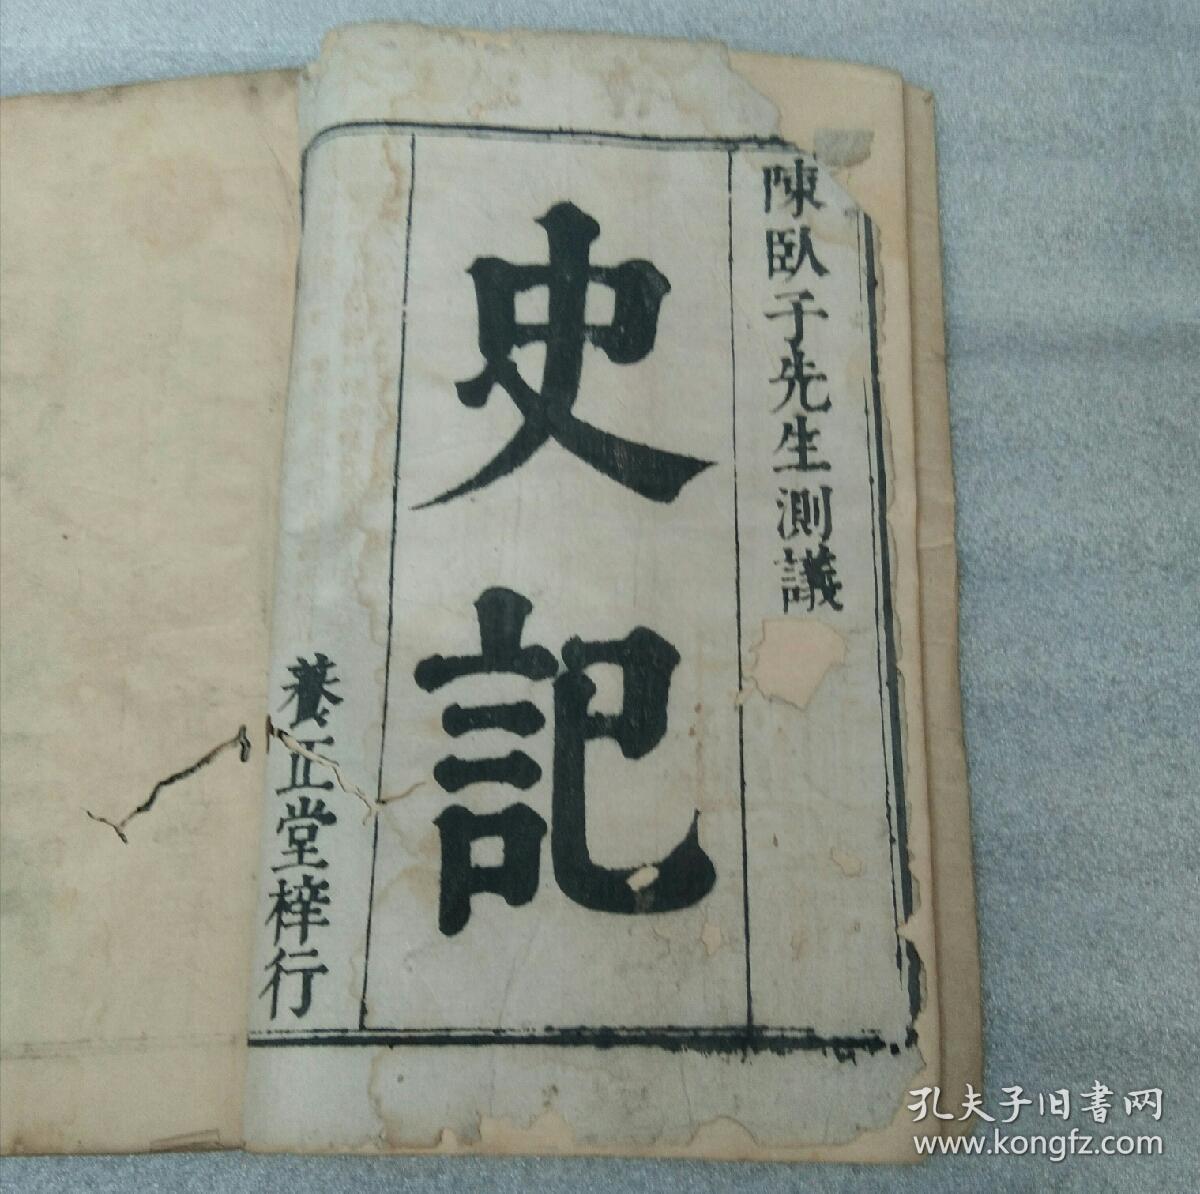 陳臥子先生測議
史記
養正堂梓行
孔夫子旧書网
www.kongfz.com